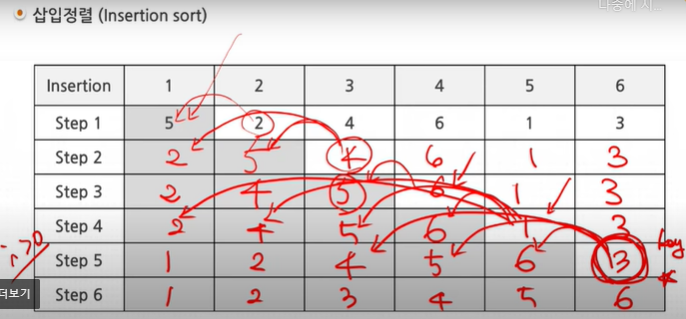 나중에 시
삽입정렬 (Insertion sort)
Insertion 1 2 3 4 5 6
Step 1 5 2 4 6 1 3
Step 2 2 5 4 6 1 3
Step 3 2 4 5 6 1 3
Step 4 2 4 5 6 1 3
Step 5 1 2 4 5 6 3 key
Step 6 1 2 3 4 5 6
더보기